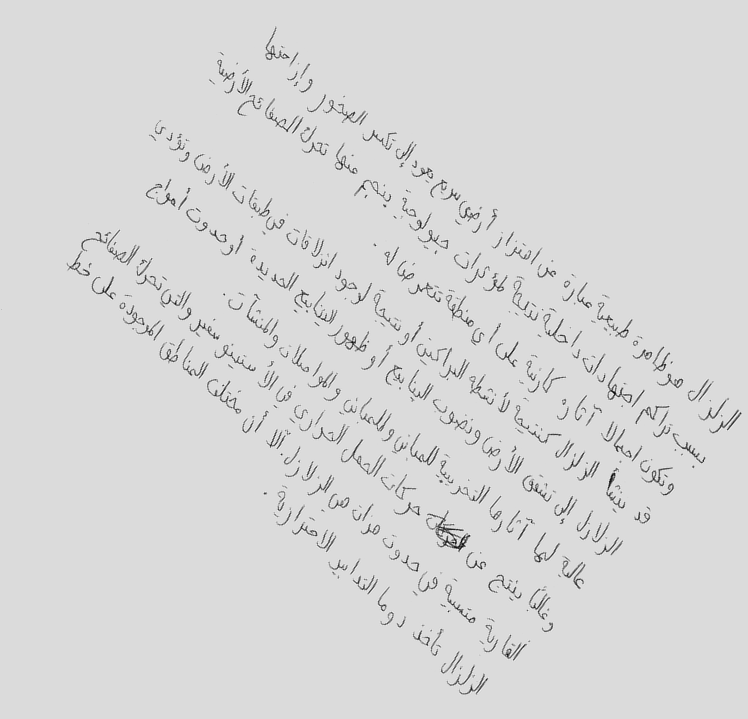 الزلزال هو ظاهرة طبيعية عبارة عن اهتزاز أرضي سريع يعود إلى تكسر الصخور وإزاحتها
بسبب تراكم اجتهادات داخلية نتيجة لمؤثرات جيولوجية ينجم عنها تحرك الصفائح الأرضية
وتكون اجمالا آثاره كارثية على أي منطقة تتعرض له .
قد ينشأ الزلزال كنتيجة لأنشطة البراكين أو نتيجة لوجود انزلاقات في طبقات الأرض وتؤدي
الزلازل إلى تشقق الأرض ونضوب الينابيع أو ظهور الينابيع الجديدة أو حدوث أمواج
عالية لها آثارها التخريبية للمباني والمواصلات والمنشآت .
وغالبًا ينتج عن حركات الحمل الحراري في الأستينوسفير والتي تحرك الصفائح
القارية متسببة في حدوث هزات من الزلازل. ألا أن مختلف المناطق الموجودة على خط
الزلزال تأخذ دوما التدابير الاحترازية .